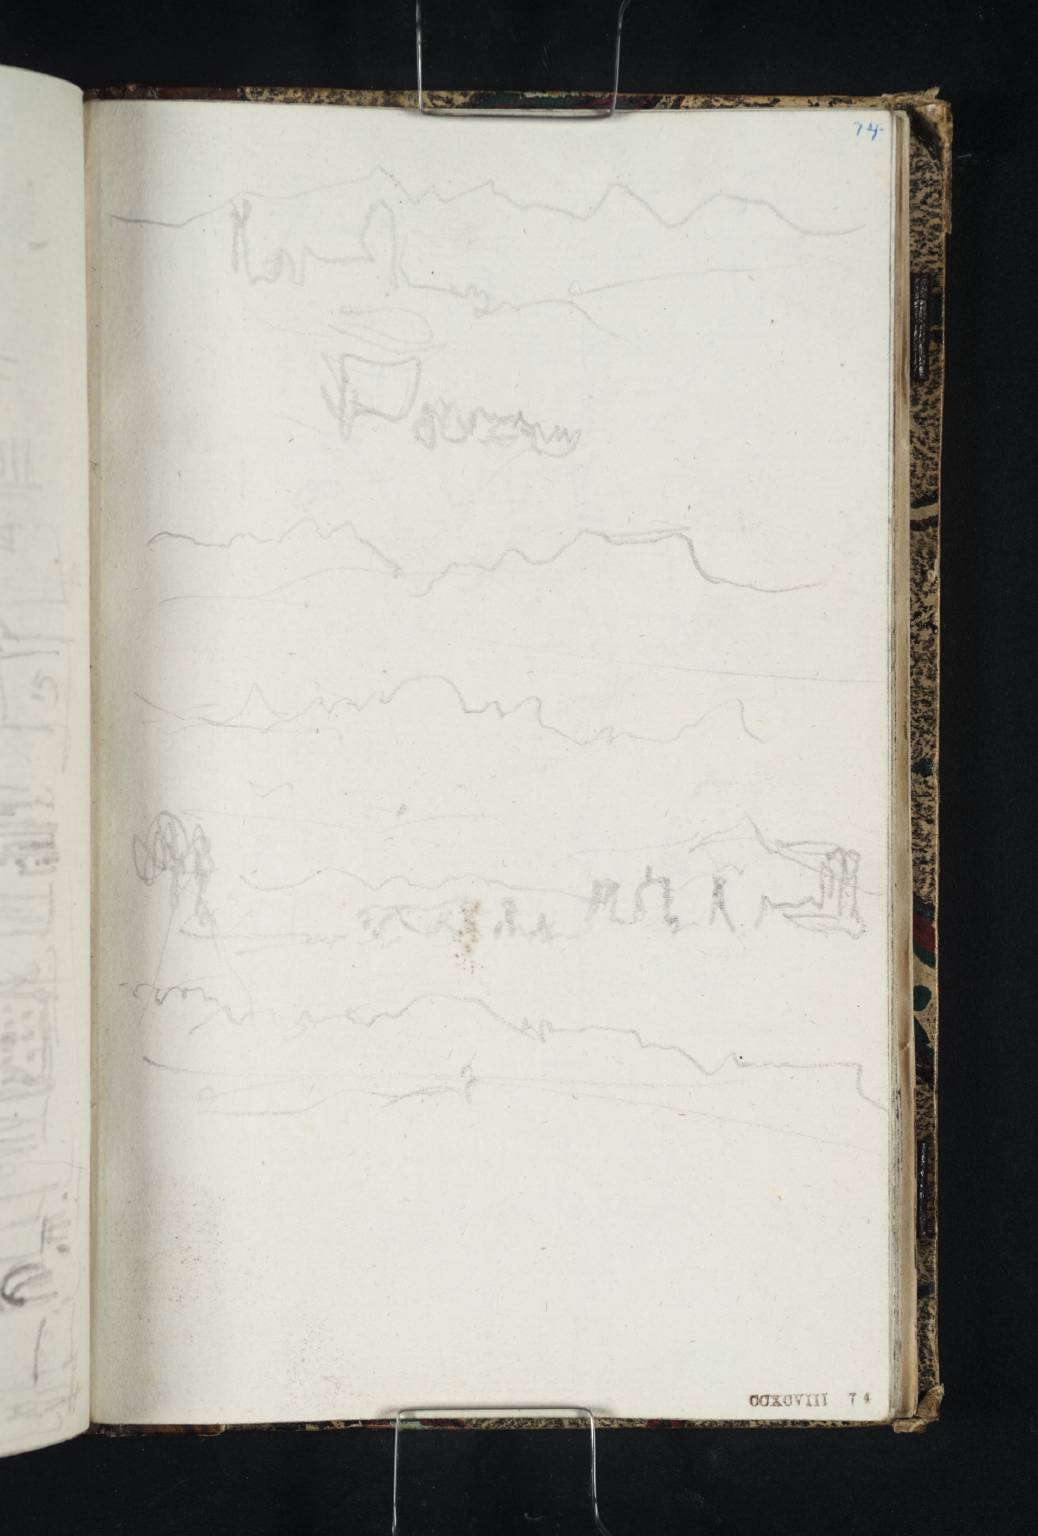 74
CCXCVIII 74